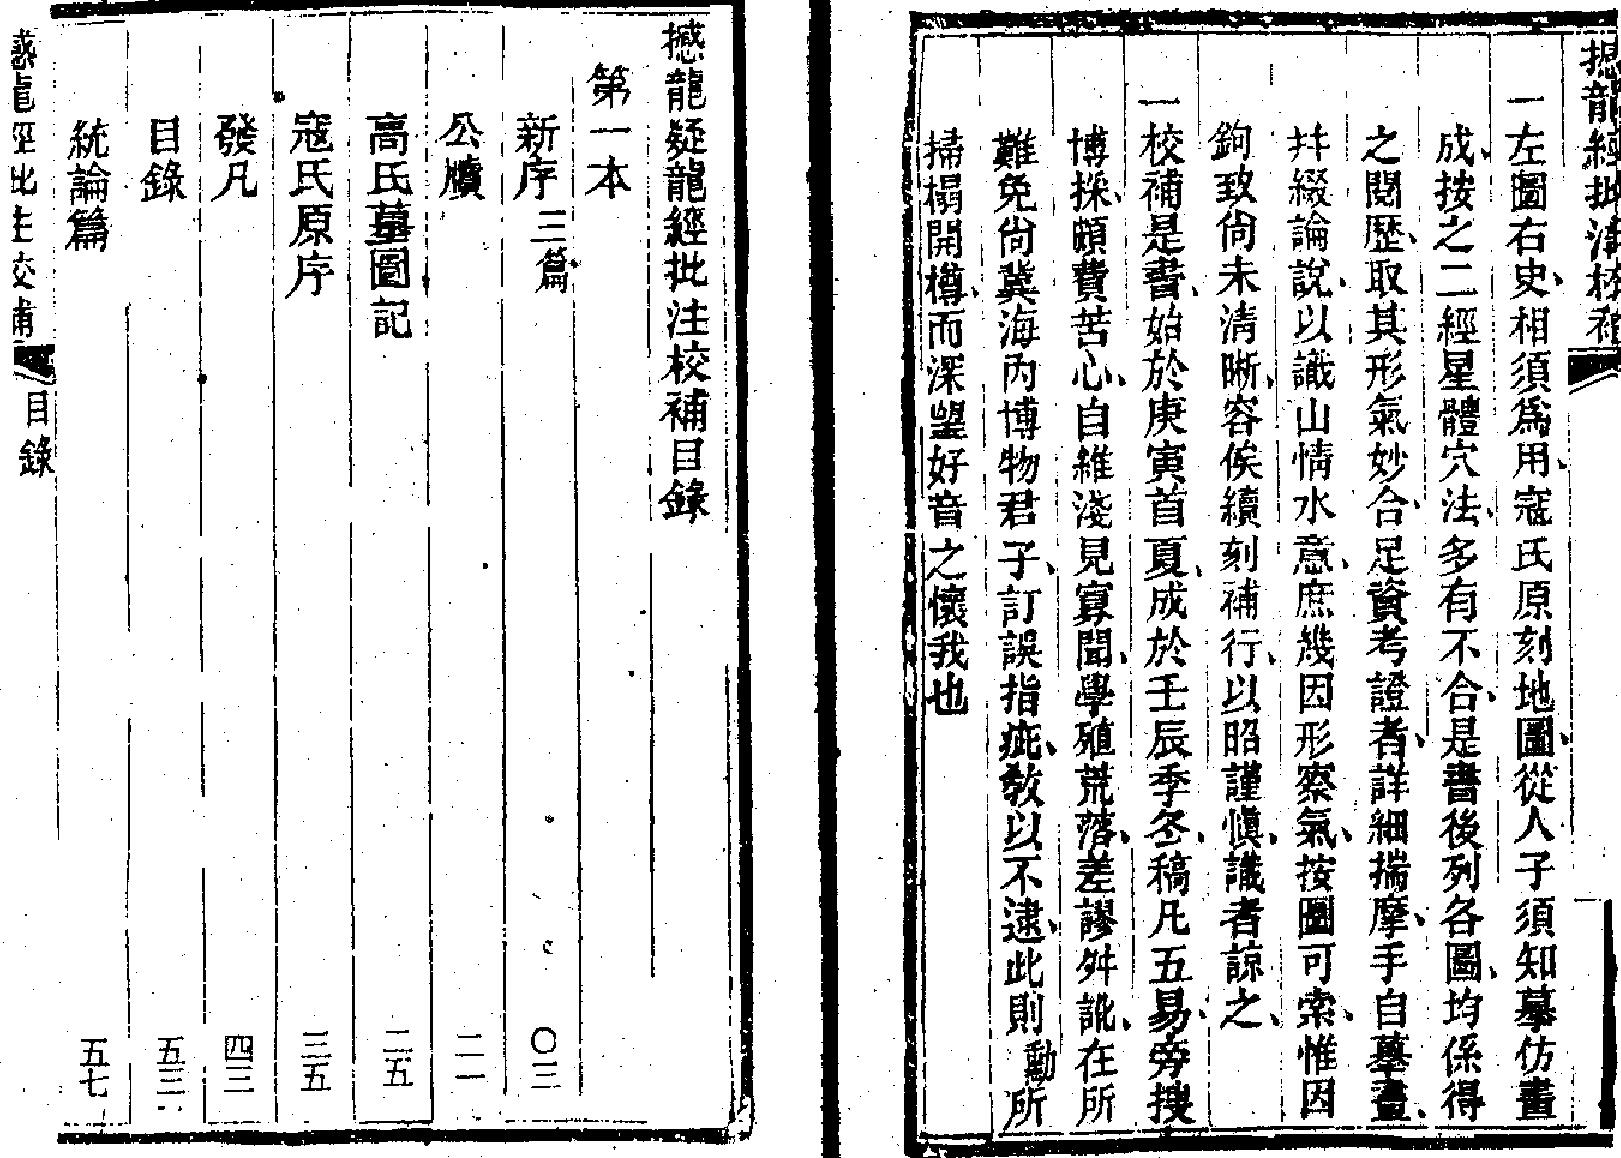 撼龍經批注校補
一左圖右史、相須爲用、寇氏原刻地圖、從人子須知摹仿畫
成、按之二經星體穴法、多有不合、是書後列各圖、均係得
之閱歷、取其形氣妙合、足資考證者、詳細揣摩、手自摹畫、
幷綴論說、以識山情水意、庶幾因形察氣、按圖可索、惟因
鉤致尙未清晰、容俟續刻補行、以昭謹愼、識者諒之、
一校補是書、始於庚寅首夏、成於壬辰季冬、稿凡五易、旁搜
博採、頗費苦心、自維淺見寡聞、學殖荒落、差謬舛訛、在所
難免、尙冀海內博物君子、訂誤指疵、敎以不逮、此則勳所
掃榻開樽、而深望好音之懷我也
撼龍疑龍經批注校補目錄
第一本
新序三篇 〇三
公牘 二一
高氏墓圖記 二五
寇氏原序 三五
發凡 四三
目錄 五三
統論篇 五七
撼龍經批注校補 目錄